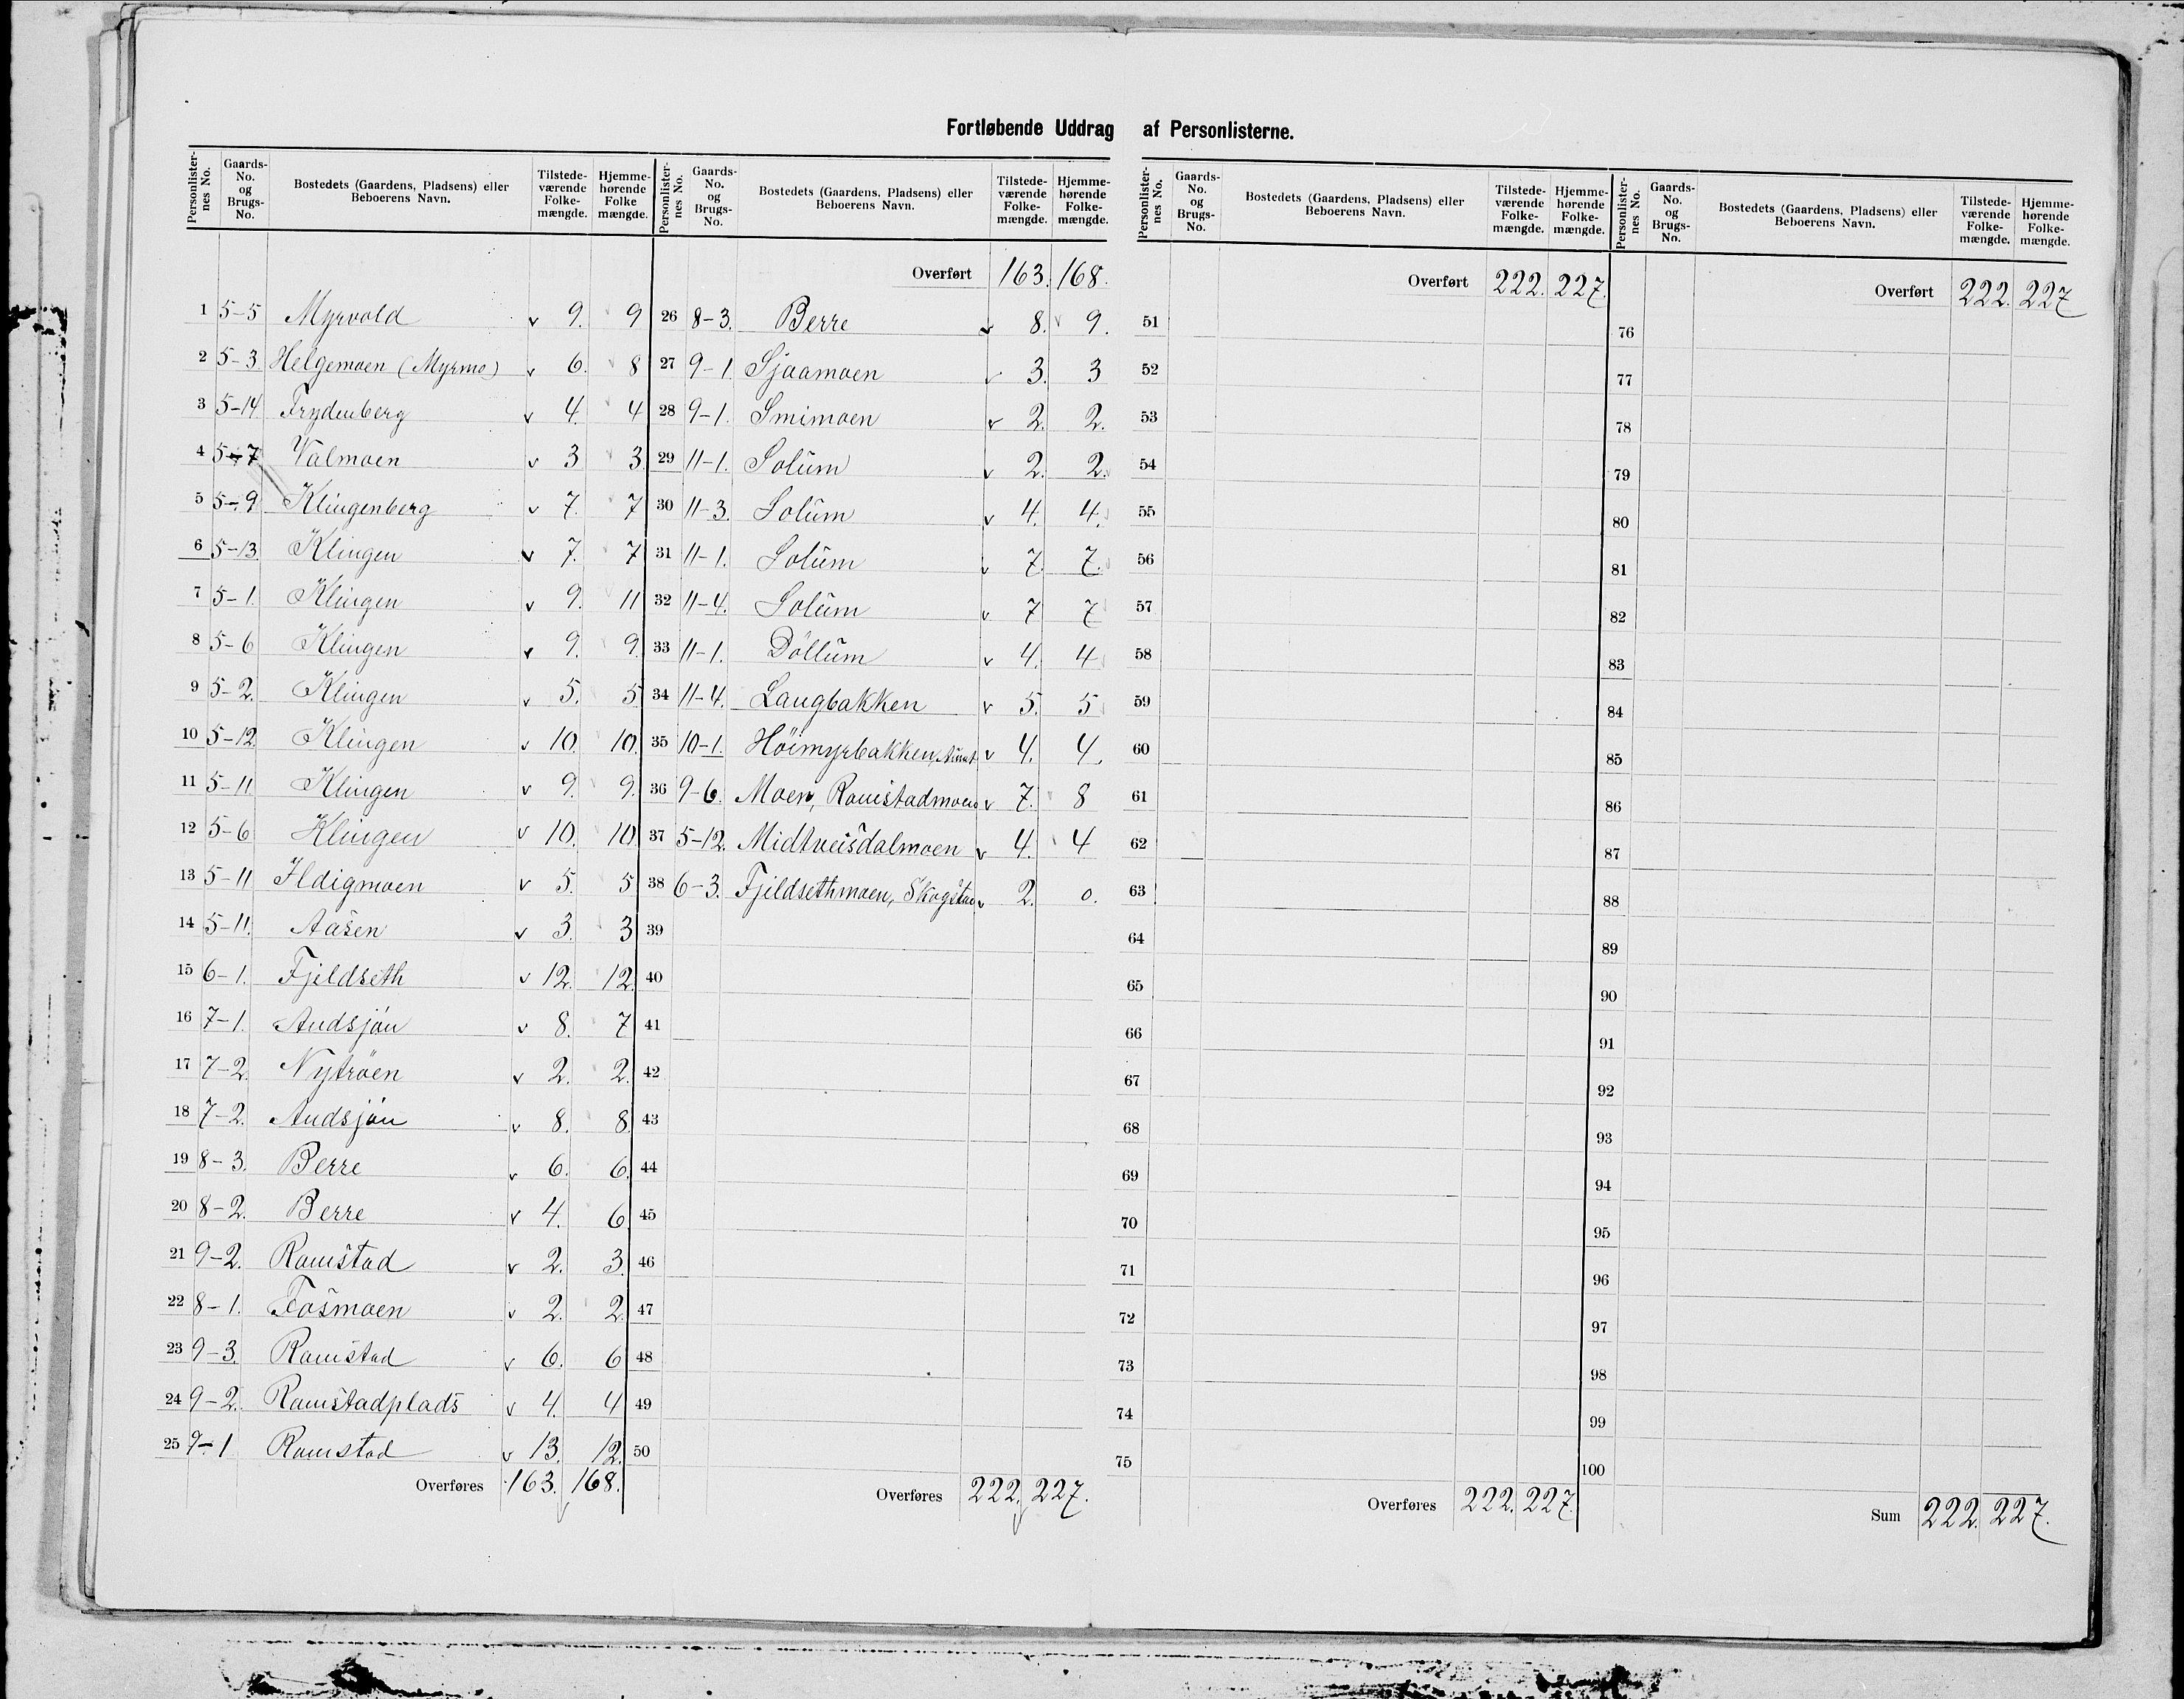 Fortløbende Uddrag af Personlisterne.
Personlisternes No. Gaards-No. og Brugs-No. Bostedets (Gaardens, Pladsens) eller Beboerens Navn. Tilstedeværende Folkemængde. Hjemmehørende Folkemængde.
1 5-5 Myrvold v 9. 9
2 5-3 Helgemoen (Myrmo) v 6. 8
3 5-14 Frydenberg v 4. 4
4 5-7 Valmoen v 3 3
5 5-9 Klingenberg v 7. 7
6 5-13 Klingen v 7. 7
7 5-1. Klingen v 9. 11
8 5-6 Klingen v 9. 9
9 5-2. Klingen v 5. 5
10 5-12. Klingen v 10. 10.
11 5-11. Klingen v 9. 9.
12 5-6 Klingen v 10. 10
13 5-11 Ildigmoen v 5. 5
14 5-11. Aasen v 3. 3
15 6-1. Fjeldseth v 12. 12
16 7-1. Audsjön v 8. 7
17 7-2. Nytröen v 2. 2.
18 7-2. Audsjön v 8. 8
19 8-3. Berre v 6. 6
20 8-2. Berre v 4. 6
21 9-2. Ramstad v 2. 3.
22 8-1. Fosmoen v 2. 2
23 9-3. Ramstad v 6. 6
24 9-2. Ramstadplads v 4. 4
25 9-1 Ramstad v 13. 12.
Overføres 163. 168.
Personlisternes No. Gaards-No. og Brugs-No. Bostedets (Gaardens, Pladsens) eller Beboerens Navn. Tilstedeværende Folkemængde. Hjemmehørende Folkemængde.
Overført 163. 168.
26 8-3. Berre v 8. v 9.
27 9-1. Sjaamoen v 3. 3
28 9-1. Smimoen v 2. 2.
29 11-1. Solum v 2. 2.
30 11-3. Solum v 4. 4.
31 11-1. Solum v 7. 7.
32 11-4. Solum v 7 7
33 11-1. Döllum v 4. 4
34 11-4. Langbakken v 5. 5
35 10-1. Höimyrbakken, v 4. 4.
36 9-6. Moen, Ramstadmoen v 7. 8
37 5-12. Midtveisdalmoen v 4. 4
38 6-3. Fjeldsethmoen, Skogstad v 2. 0.
39
40
41
42
43
44
45
46
47
48
49
50
Overføres 222. 227.
Personlisternes No. Gaards-No. og Brugs-No. Bostedets (Gaardens, Pladsens) eller Beboerens Navn. Tilstedeværende Folkemængde. Hjemmehørende Folkemængde.
Overført 222. 227.
51
52
53
54
55
56
57
58
59
60
61
62
63
64
65
66
67
68
69
70
71
72
73
74
75
Overføres 222. 227.
Personlisternes No. Gaards-No. og Brugs-No. Bostedets (Gaardens, Pladsens) eller Beboerens Navn. Tilstedeværende Folkemængde. Hjemmehørende Folkemængde.
Overført 222. 227
76
77
78
79
80
81
82
83
84
85
86
87
88
89
90
91
92
93
94
95
96
97
98
99
100
Sum 222. 227.